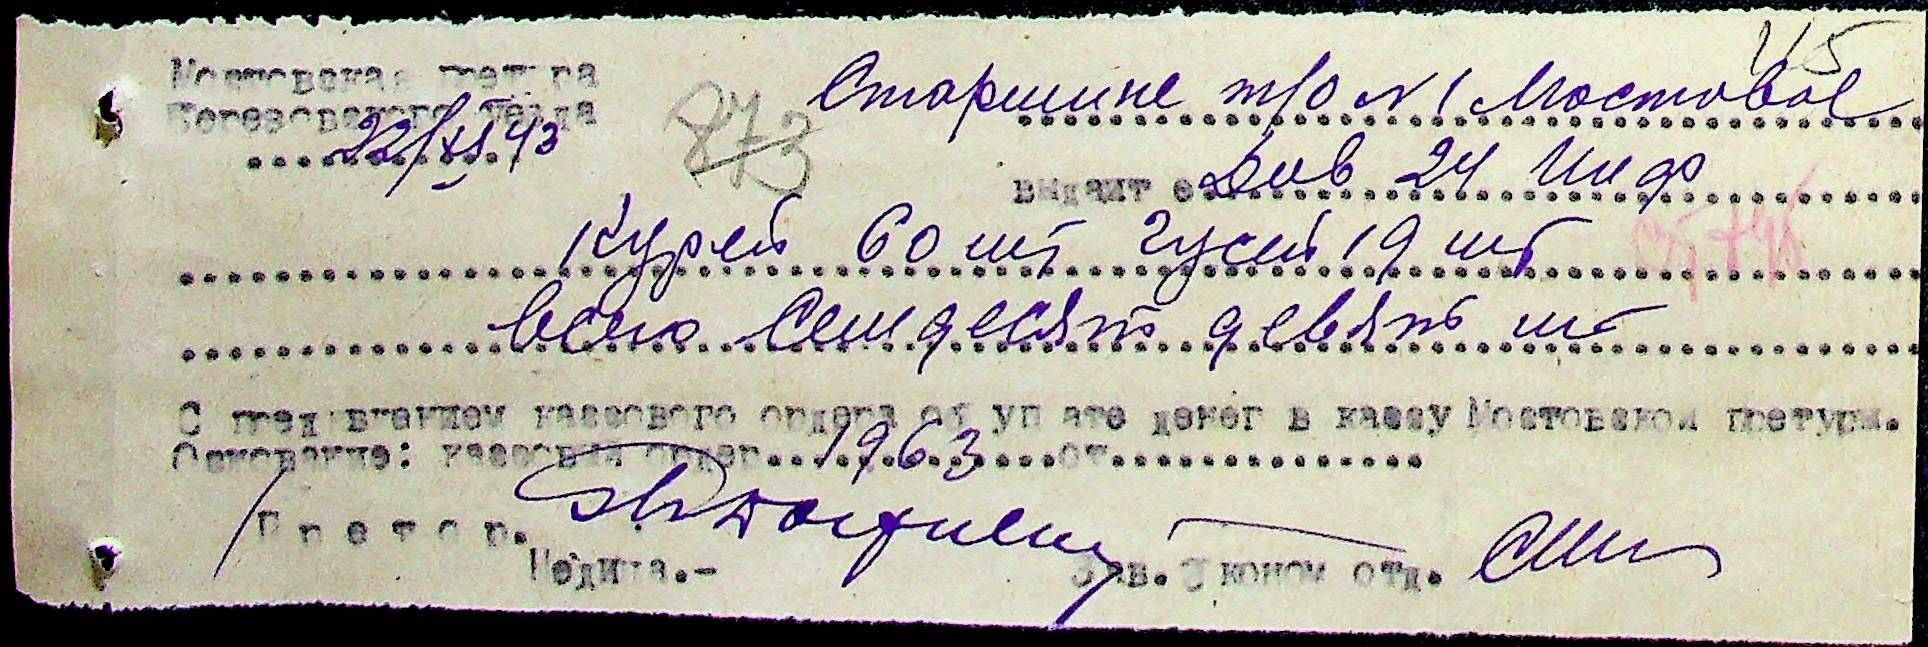 45
Мостовская претура
Березовского уезда
22/XI 43
873
Старшине т/о N 1 Мостовое
выдайте Див 24 Инф
Курей 60 шт Гусей 19 шт
всего Семдесят девять шт
С пред'явлением кассового ордера об уплате денег в кассу Мостовской претуры.
Основание: кассовый ордер 1963 от
Претор.
Зав. Эконом отд.